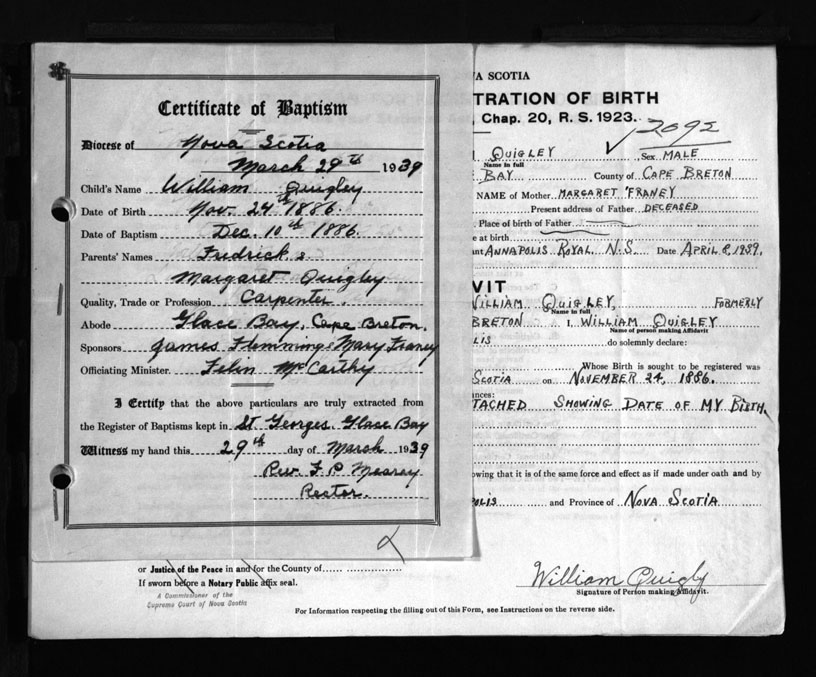 Certificate of Baptism
Diocese of Nova Scotia
March 29th 1939
Child's Name William Quigley
Date of Birth Nov. 24th 1886.
Date of Baptism Dec. 10th 1886.
Parents' Names Fredrick &
Margaret Quigley
Quality, Trade or Profession Carpenter.
Abode Glace Bay, Cape Breton.
Sponsors James Flemming & Mary Franey
Officiating Minister. Felin McCarthy
I Certify that the above particulars are truly extracted from
the Register of Baptisms kept in St Georges. Glace Bay
Witness my hand this 29th day of March 1939
Rev. F. P.
Rector.
VA SCOTIA
TRATION OF BIRTH
, Chap. 20, R. S. 1923.
2092
QUIGLEY Sex MALE
Name in full
BAY County of CAPE BRETON
NAME of Mother MARGARET FRANEY
Present address of Father DECEASED
Place of birth of Father
e at birth
nt ANNAPOLIS ROYAL N.S. Date APRIL 8, 1939.
VIT
WILLIAM QUIGLEY, FORMERLY
Name in full
BRETON I, WILLIAM QUIGLEY
Name of person making Affidavit
LIS do solemnly declare:
Whose Birth is sought to be registered was
SCOTIA on NOVEMBER 24, 1886.
nces:
TACHED SHOWING DATE OF MY BIRTH.
owing that it is of the same force and effect as if made under oath and by
POLIS and Province of NOVA SCOTIA
or Justice of the Peace in and for the County of
If sworn before a Notary Public affix seal.
A Commissioner of the
Supreme Court of Nova Scotia
William Quigly
Signature of Person making Affidavit.
For Information respecting the filling out of this Form, see Instructions on the reverse side.